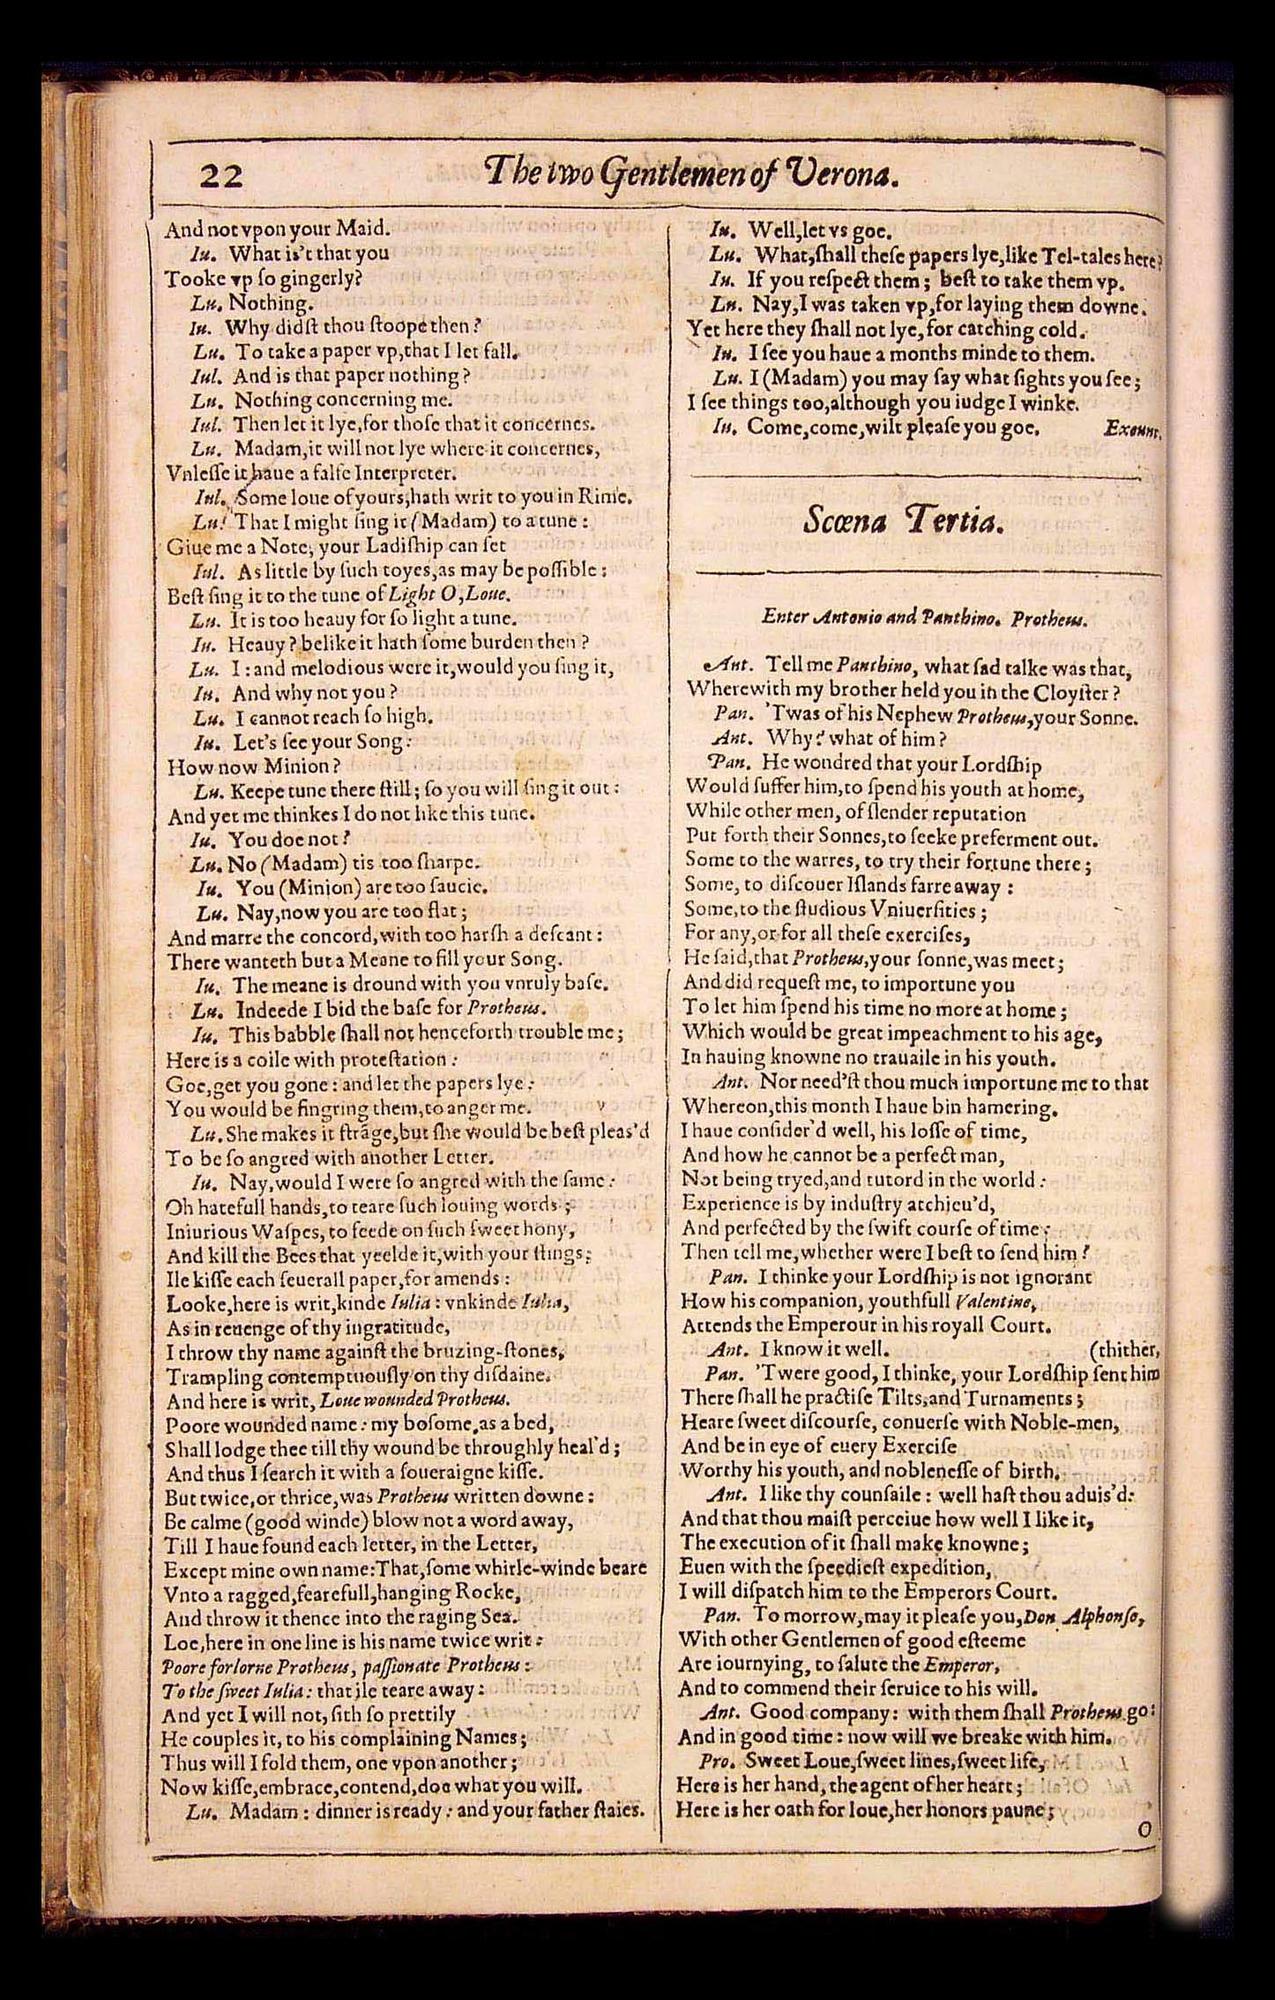 22
The two Gentlemen of Verona.
And not vpon your Maid.
Iu. What is't that you
Tooke vp ſo gingerly?
Lu. Nothing.
Iu. Why didſt thou ſtoope then?
Lu. To take a paper vp,that I let fall.
Iul. And is that paper nothing?
Lu. Nothing concerning me.
Iul. Then let it lye,for thoſe that it concernes.
Lu. Madam,it will not lye where it concernes,
Vnleſſe it haue a falſe Interpreter.
Iul. Some loue of yours,hath writ to you in Rime.
Lu. That I might ſing it (Madam) to a tune:
Giue me a Note, your Ladiſhip can ſet
Iul. As little by ſuch toyes,as may be poſſible:
Beſt ſing it to the tune of Light O,Loue.
Lu. It is too heauy for ſo light a tune.
Iu. Heauy? belike it hath ſome burden then?
Lu. I: and melodious were it,would you ſing it,
Iu. And why not you?
Lu. I cannot reach ſo high.
Iu. Let's ſee your Song:
How now Minion?
Lu. Keepe tune there ſtill; ſo you will ſing it out:
And yet me thinkes I do not like this tune.
Iu. You doe not?
Lu. No (Madam) tis too ſharpe.
Iu. You (Minion) are too ſaucie.
Lu. Nay,now you are too flat;
And marre the concord,with too harſh a deſcant:
There wanteth but a Meane to fill your Song.
Iu. The meane is dround with you vnruly baſe.
Lu. Indeede I bid the baſe for Protheus.
Iu. This babble ſhall not henceforth trouble me;
Here is a coile with proteſtation:
Goe,get you gone: and let the papers lye:
You would be fingring them,to anger me.
Lu. She makes it ſtrãge,but ſhe would be beſt pleas'd
To be ſo angred with another Letter.
Iu. Nay,would I were ſo angred with the ſame:
Oh hatefull hands,to teare ſuch louing words;
Iniurious Waſpes, to feede on ſuch ſweet hony,
And kill the Bees that yeelde it,with your ſtings;
Ile kiſſe each ſeuerall paper,for amends:
Looke,here is writ,kinde Iulia: vnkinde Iulia,
As in reuenge of thy ingratitude,
I throw thy name againſt the bruzing-ſtones,
Trampling contemptuouſly on thy diſdaine.
And here is writ, Loue wounded Protheus.
Poore wounded name: my boſome,as a bed,
Shall lodge thee till thy wound be throughly heal'd;
And thus I ſearch it with a ſoueraigne kiſſe.
But twice,or thrice,was Protheus written downe:
Be calme (good winde) blow not a word away,
Till I haue found each letter, in the Letter,
Except mine own name:That,ſome whirle-winde beare
Vnto a ragged,fearefull,hanging Rocke,
And throw it thence into the raging Sea.
Loe,here in one line is his name twice writ:
Poore forlorne Protheus, paſſionate Protheus:
To the ſweet Iulia: that ile teare away:
And yet I will not, ſith ſo prettily
He couples it, to his complaining Names;
Thus will I fold them, one vpon another;
Now kiſſe,embrace,contend,doe what you will.
Lu. Madam: dinner is ready: and your father ſtaies.
Iu. Well,let vs goe.
Lu. What,ſhall theſe papers lye,like Tel-tales here?
Iu. If you reſpect them; beſt to take them vp.
Lu. Nay,I was taken vp,for laying them downe.
Yet here they ſhall not lye,for catching cold.
Iu. I ſee you haue a months minde to them.
Lu. I (Madam) you may ſay what ſights you ſee;
I ſee things too,although you iudge I winke.
Iu. Come,come,wilt pleaſe you goe. Exeunt.
Scœna Tertia.
Enter Antonio and Panthino. Protheus.
Ant. Tell me Panthino, what ſad talke was that,
Wherewith my brother held you in the Cloyſter?
Pan. 'Twas of his Nephew Protheus,your Sonne.
Ant. Why? what of him?
Pan. He wondred that your Lordſhip
Would ſuffer him,to ſpend his youth at home,
While other men, of ſlender reputation
Put forth their Sonnes,to ſeeke preferment out.
Some to the warres, to try their fortune there;
Some, to diſcouer Iſlands farre away:
Some,to the ſtudious Vniuerſities;
For any,or for all theſe exerciſes,
He ſaid,that Protheus,your ſonne,was meet;
And did requeſt me, to importune you
To let him ſpend his time no more at home;
Which would be great impeachment to his age,
In hauing knowne no trauaile in his youth.
Ant. Nor need'ſt thou much importune me to that
Whereon,this month I haue bin hamering.
I haue conſider'd well, his loſſe of time,
And how he cannot be a perfect man,
Not being tryed,and tutord in the world:
Experience is by induſtry atchieu'd,
And perfected by the ſwift courſe of time:
Then tell me,whether were I beſt to ſend him?
Pan. I thinke your Lordſhip is not ignorant
How his companion, youthfull Valentine,
Attends the Emperour in his royall Court.
Ant. I know it well. (thither,
Pan. 'Twere good, I thinke, your Lordſhip ſent him
There ſhall he practiſe Tilts,and Turnaments;
Heare ſweet diſcourſe, conuerſe with Noble-men,
And be in eye of euery Exerciſe
Worthy his youth, and nobleneſſe of birth.
Ant. I like thy counſaile: well haſt thou aduis'd:
And that thou maiſt perceiue how well I like it,
The execution of it ſhall make knowne;
Euen with the ſpeedieſt expedition,
I will diſpatch him to the Emperors Court.
Pan. To morrow,may it pleaſe you,Don Alphonſo,
With other Gentlemen of good eſteeme
Are iournying, to ſalute the Emperor,
And to commend their ſeruice to his will.
Ant. Good company: with them ſhall Protheus go:
And in good time: now will we breake with him.
Pro. Sweet Loue,ſweet lines,ſweet life,
Here is her hand, the agent of her heart;
Here is her oath for loue,her honors paune;
O